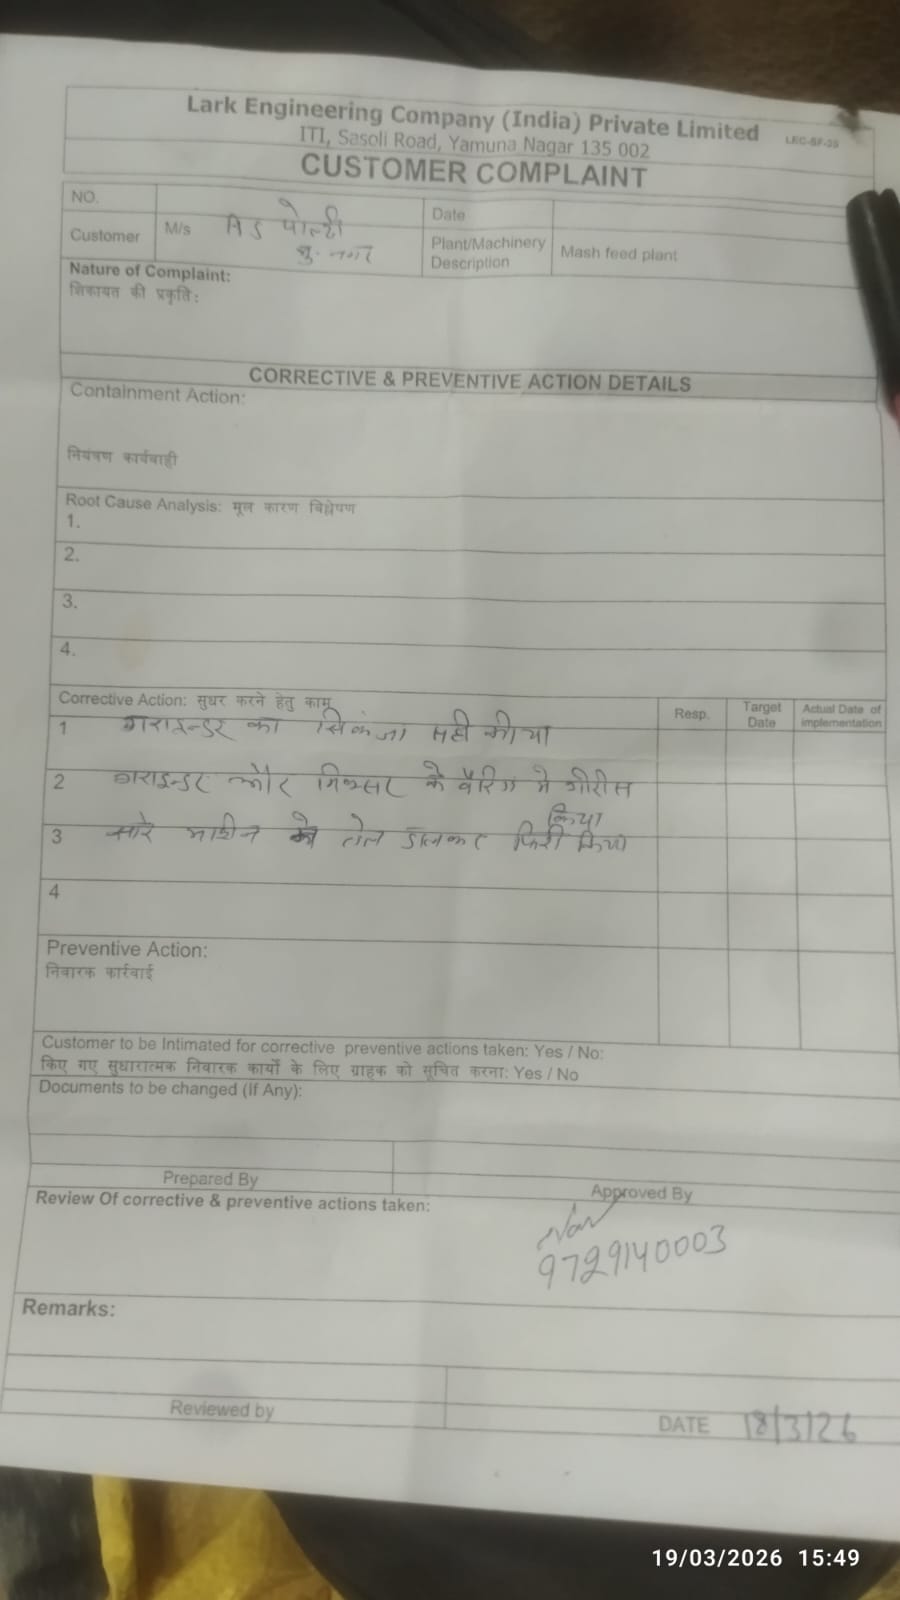 Lark Engineering Company (India) Private Limited
LEC-SF-35
ITI, Sasoli Road, Yamuna Nagar 135 002
CUSTOMER COMPLAINT
NO.
Date
Customer M/s A S पोल्ट्री
नगर
Plant/Machinery Description Mash feed plant
Nature of Complaint:
शिकायत की प्रकृति:
CORRECTIVE & PREVENTIVE ACTION DETAILS
Containment Action:
नियंत्रण कार्यवाही
Root Cause Analysis: मूल कारण विश्लेषण
1.
2.
3.
4.
Corrective Action: सुधर करने हेतु काम
Resp. Target Date Actual Date of implementation
1 गराइन्डर का सिकंजा सही कीया
2 गराइन्डर और मिक्सर के बैरिंग मे गीरीस
किया
3 सारे मशीन को तेल डालकर फिरी किया
4
Preventive Action:
निवारक कार्रवाई
Customer to be Intimated for corrective preventive actions taken: Yes / No:
किए गए सुधारात्मक निवारक कार्यों के लिए ग्राहक को सूचित करना: Yes / No
Documents to be changed (If Any):
Prepared By
Approved By
Review Of corrective & preventive actions taken:
9729140003
Remarks:
Reviewed by
DATE 18/3/26
19/03/2026 15:49